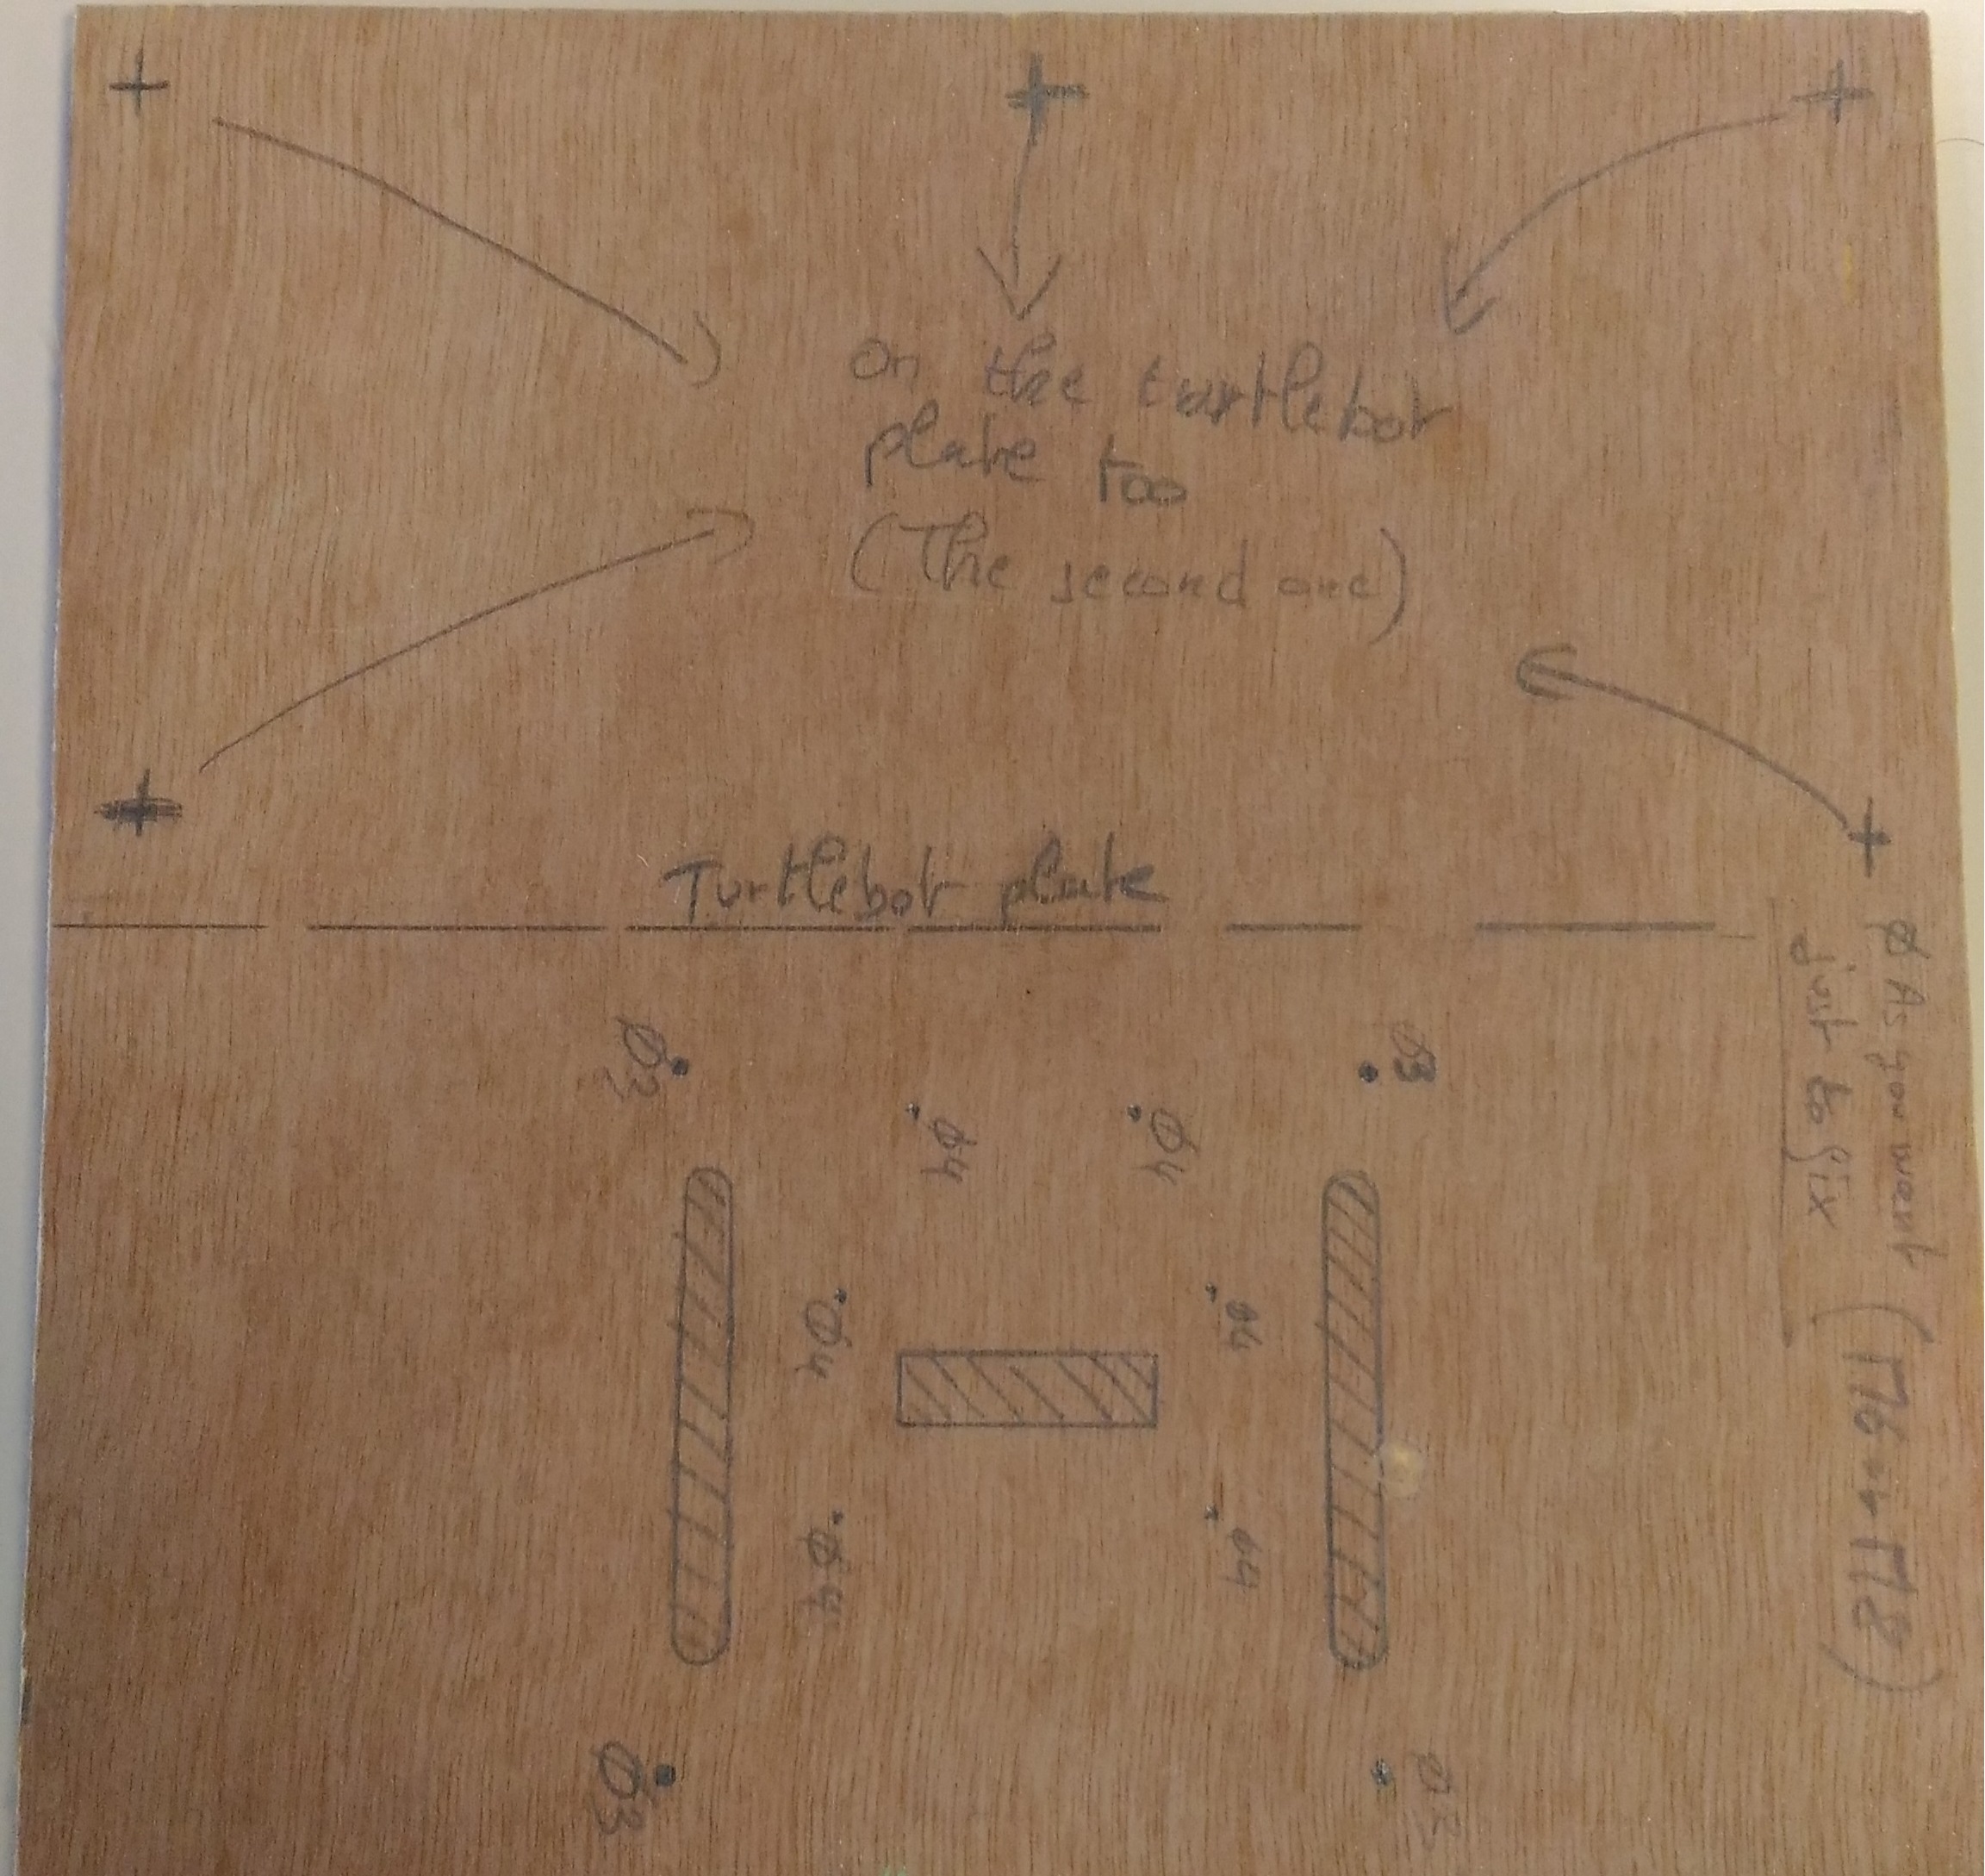 on the turtlebot
plate too
(The second one)
Turtlebot plate
Ø As you want
just to fix
(M6 or M8)
Ø3
Ø3
Ø4
Ø4
Ø4
Ø4
Ø4
Ø4
Ø3
Ø3